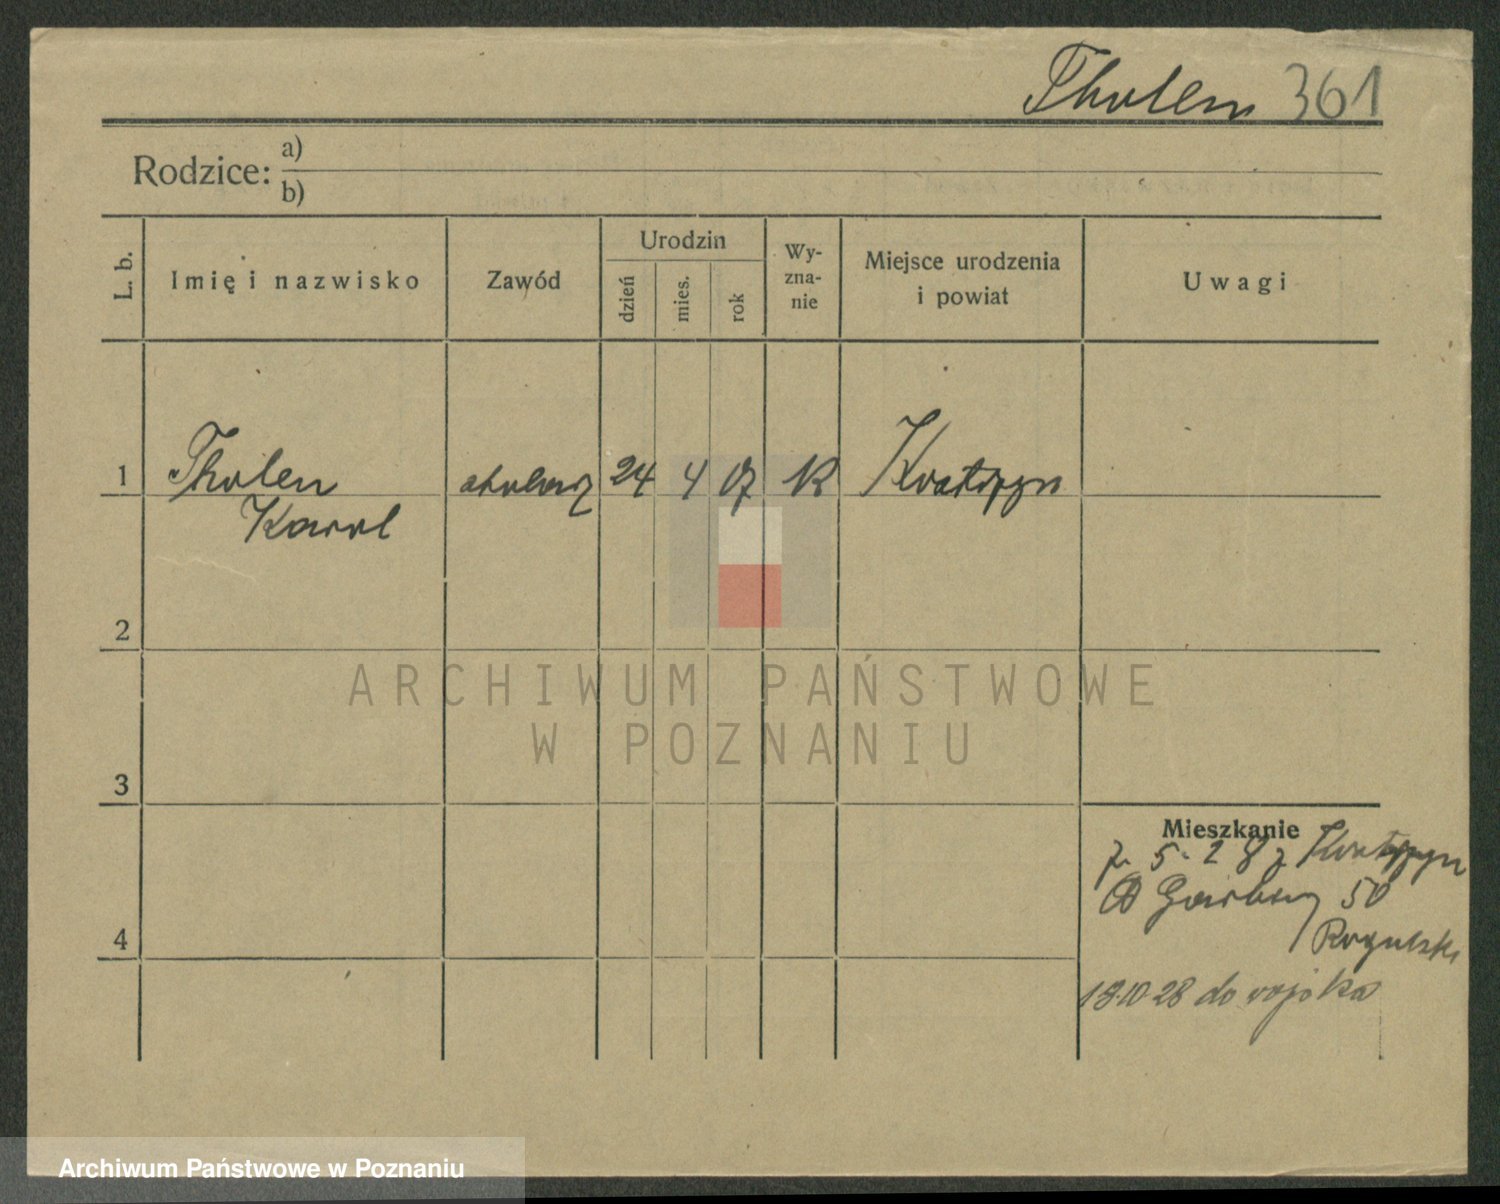 Tholen 361
Rodzice: a)
b)
L. b.
Imię i nazwisko
Zawód
Urodzin
dzień
mies.
rok
Wy-
zna-
nie
Miejsce urodzenia
i powiat
Uwagi
1 Tholen 24 4 07 K
Karol
2
3
4
ARCHIWUM PAŃSTWOWE
W POZNANIU
Mieszkanie
5. 28 z
Garbary 50
Rogulski
18·10·28 do wojska
Archiwum Państwowe w Poznaniu